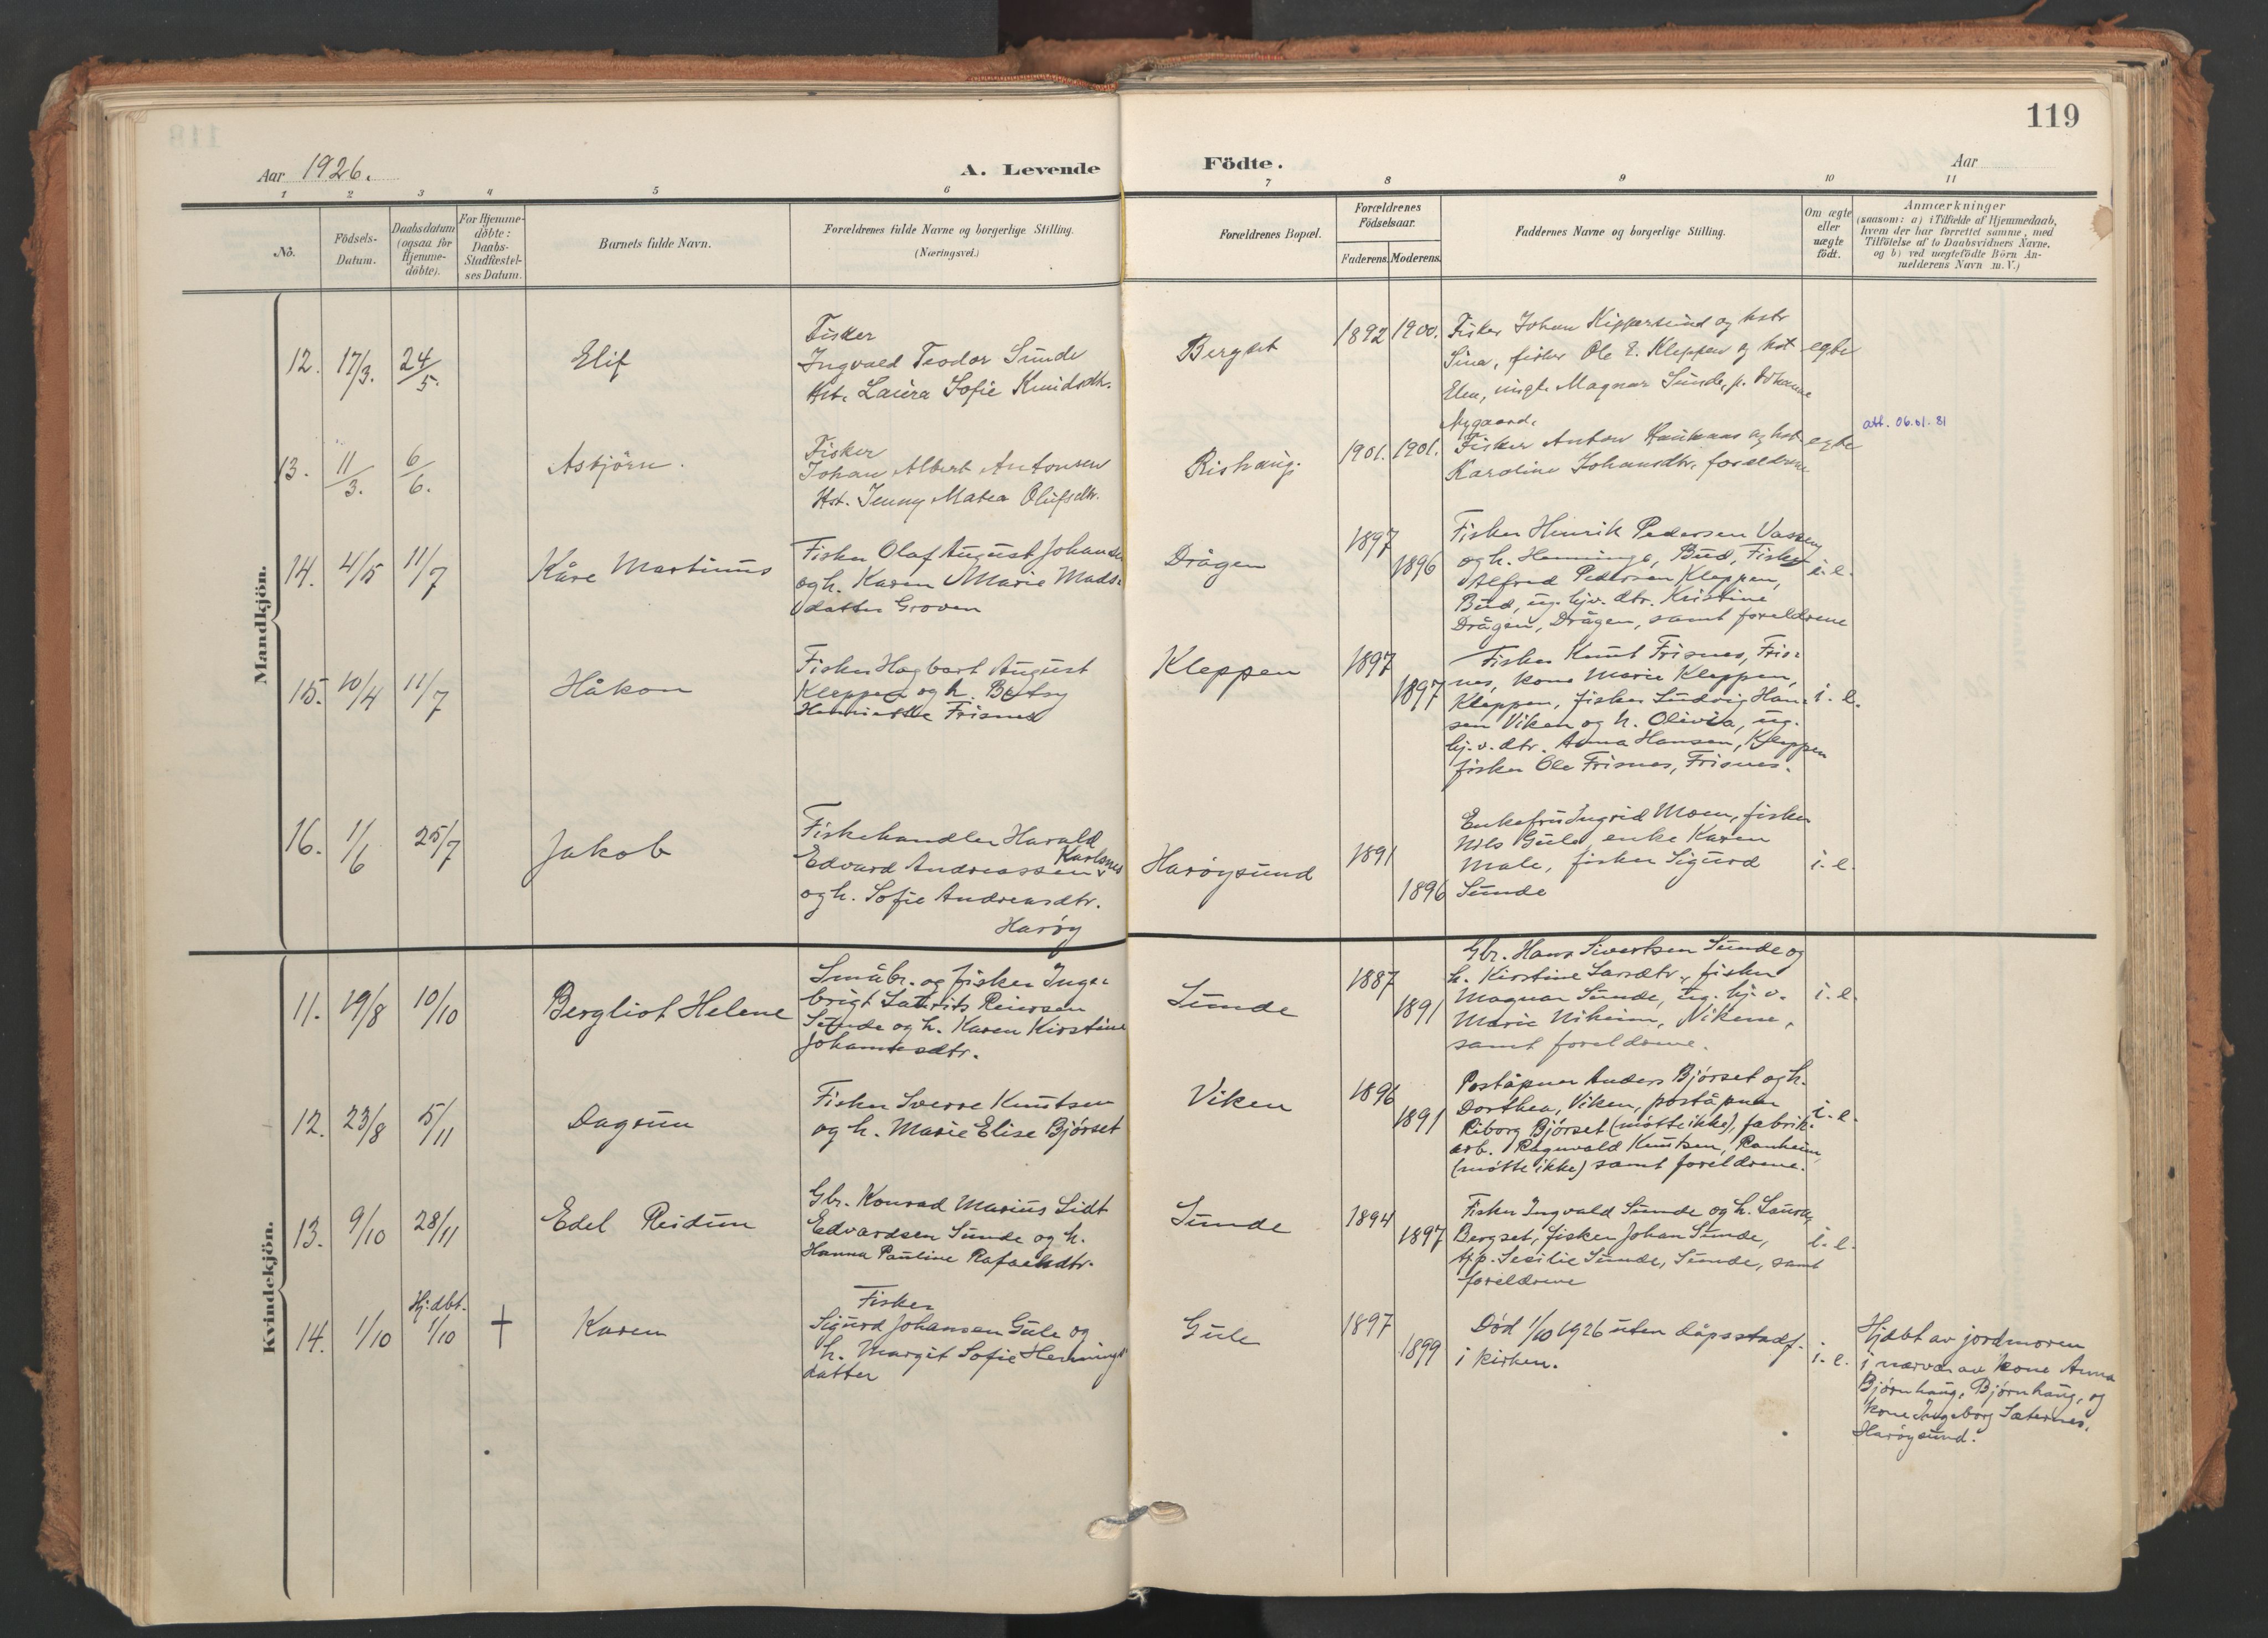 119
Aar 1926.
A. Levende Födte.
Aar
1 2 3 4 5 6 7 8 9 10 11
No.
Födsels-
Datum.
Daabsdatum
(ogsaa for
Hjemme-
döbte).
For Hjemme-
döbte:
Daabs-
Stadfæstel-
ses Datum.
Barnets fulde Navn.
Forældrenes fulde Navne og borgerlige Stilling.
(Næringsvei.)
Forældrenes Bopæl.
Forældrenes
Födselsaar.
Faderens. Moderens.
Faddernes Navne og borgerlige Stilling.
Om ægte
eller
uægte
födt.
Anmærkninger
(saasom: a) i Tilfælde af Hjemmedaab,
hvem der har forrettet samme, med
Tilföielse af to Daabsvidners Navne,
og b) ved uægtefödte Börn An-
melderens Navn m. V.)
Mandkjön.
12. 17/3. 24/5. Elif
Fisker
Ingvald Teodor Sunde
Hst. Laura Sofie Knudsdtr.
Bergset
1892 1900.
Fisker Johan og hstr
Sina, fisker Ole E. Kleppen og hst
Elen, ungk. Magnar Sunde, p. Johanne
Nygaard.
egte
13. 11/3. 6/6. Asbjörn.
Fisker
Johan Albert Antonsen
Hst. Jenny Matea Olufsdtr.
Rishaug.
1901. 1901.
Fisker Anton og hst
Karoline Johansdtr. foreldrene
egte
att. 06.01.81
14. 4/5 11/7 Kåre Martinus
Fisker Olaf August Johansen
og h. Karen Marie Mads-
datter Groven
Drågen
1897
1896
Fisker Henrik Pedersen
og h. Henninga, Bud, Fisker
Alfred Pedersen Kleppen,
Bud, ug. hj.v. dtr. Kristine
Drågen, Drågen, samt foreldrene
i. e.
15. 10/4 11/7 Håkon
Fisker Hagbart August
Kleppen og h. Betsy
Henriette Frisnes
Kleppen
1897
1897
Fisker Knut Frisnes, Fris-
nes, kone Marie Kleppen,
Kleppen, fisker Ludvig Han-
sen Viken og h. Olivia, ug.
hj. v. dtr. Anna Hansen, Kleppen
fisker Ole Frisnes, Frisnes.
i. e.
16. 1/6 25/7 Jakob
Fiskehandler Harald
Edvard Andreassen Karlsnes
og h. Sofie Andreasdtr.
Harøy
Harøysund
1891
1896
Enkefru Ingrid Moen, fisker
Nils Gule, enke Karen
Male, fisker Sigurd
Sunde
i. e.
Kvindekjön.
11. 19/8 10/10 Bergliot Helene
Småbr. og fisker Inge-
brigt Laurits Reiersen
Sunde og h. Karen Kirstine
Johannesdtr.
Sunde
1887
1891
Gbr. Hans Sivertsen Sunde og
h. Kirstine Larsdtr., fisker
Magnar Sunde, ug. hj. v.
Marie Nikeim, Nikene,
samt foreldrene.
i. e.
12. 23/8 5/11 Dagrun
Fisker Sverre Knutsen
og h. Marie Elise Bjórset
Viken
1896
1891
Poståpner Anders Bjórset og h.
Dorthea, Viken, poståpner
Riborg Bjórset (møtte ikke), fabrik-
arb. Ragnvald Knutsen, Ranheim,
(møtte ikke) samt foreldrene.
i. e.
13. 9/10 28/11 Edel Reidun
Gbr. Konrad Marius Lidt
Edvardsen Sunde og h.
Hanna Pauline Rafaelsdtr.
Sunde
1894
1897
Fisker Ingvald Sunde og h. Laura,
Bergset, fisker Johan Sunde,
tj.p. Sesilie Sunde, Sunde, samt
foreldrene
i. e.
14. 1/10 Hj.dbt. 1/10 + Karen
Fisker
Sigurd Johansen Gule og
h. Margit Sofie Hennings-
datter
Gule
1897
1899
Död 1/10 1926 uten dåpsstadf.
i kirken.
i. e.
Hjdbt av jordmoren
i nærvær av kone Anna
Bjørnhaug, Bjørnhaug, og
kone Ingeborg Sæternes,
Harøysund.